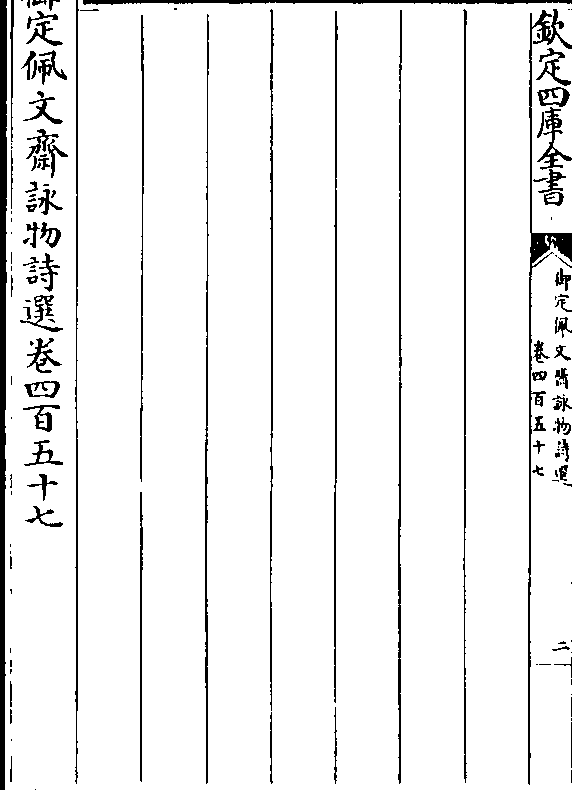 欽定四庫全書
御定佩文齋詠物詩選
卷四百五十七
二
御定佩文齋詠物詩選卷四百五十七